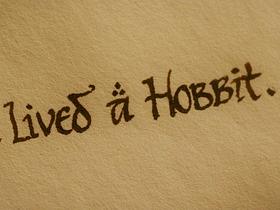 Lived a Hobbit.